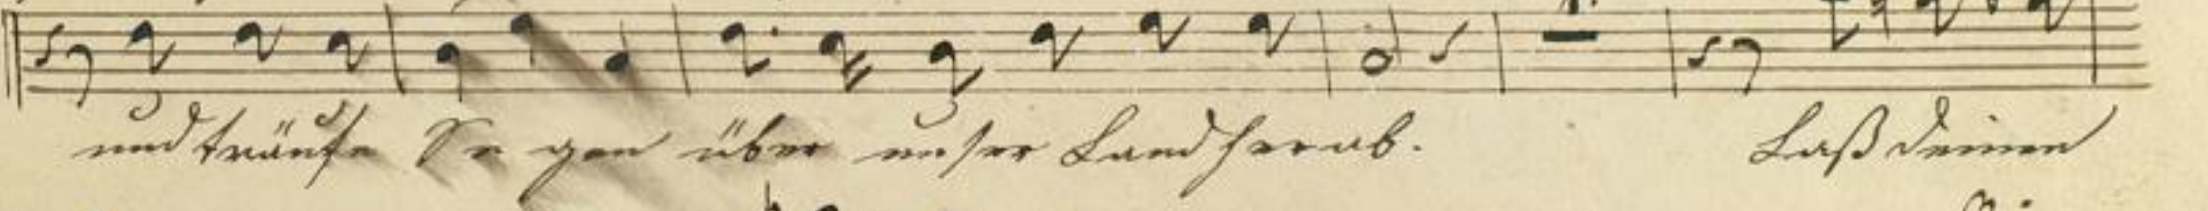 und träufe Se gen über unser Land herab. Laß deinen